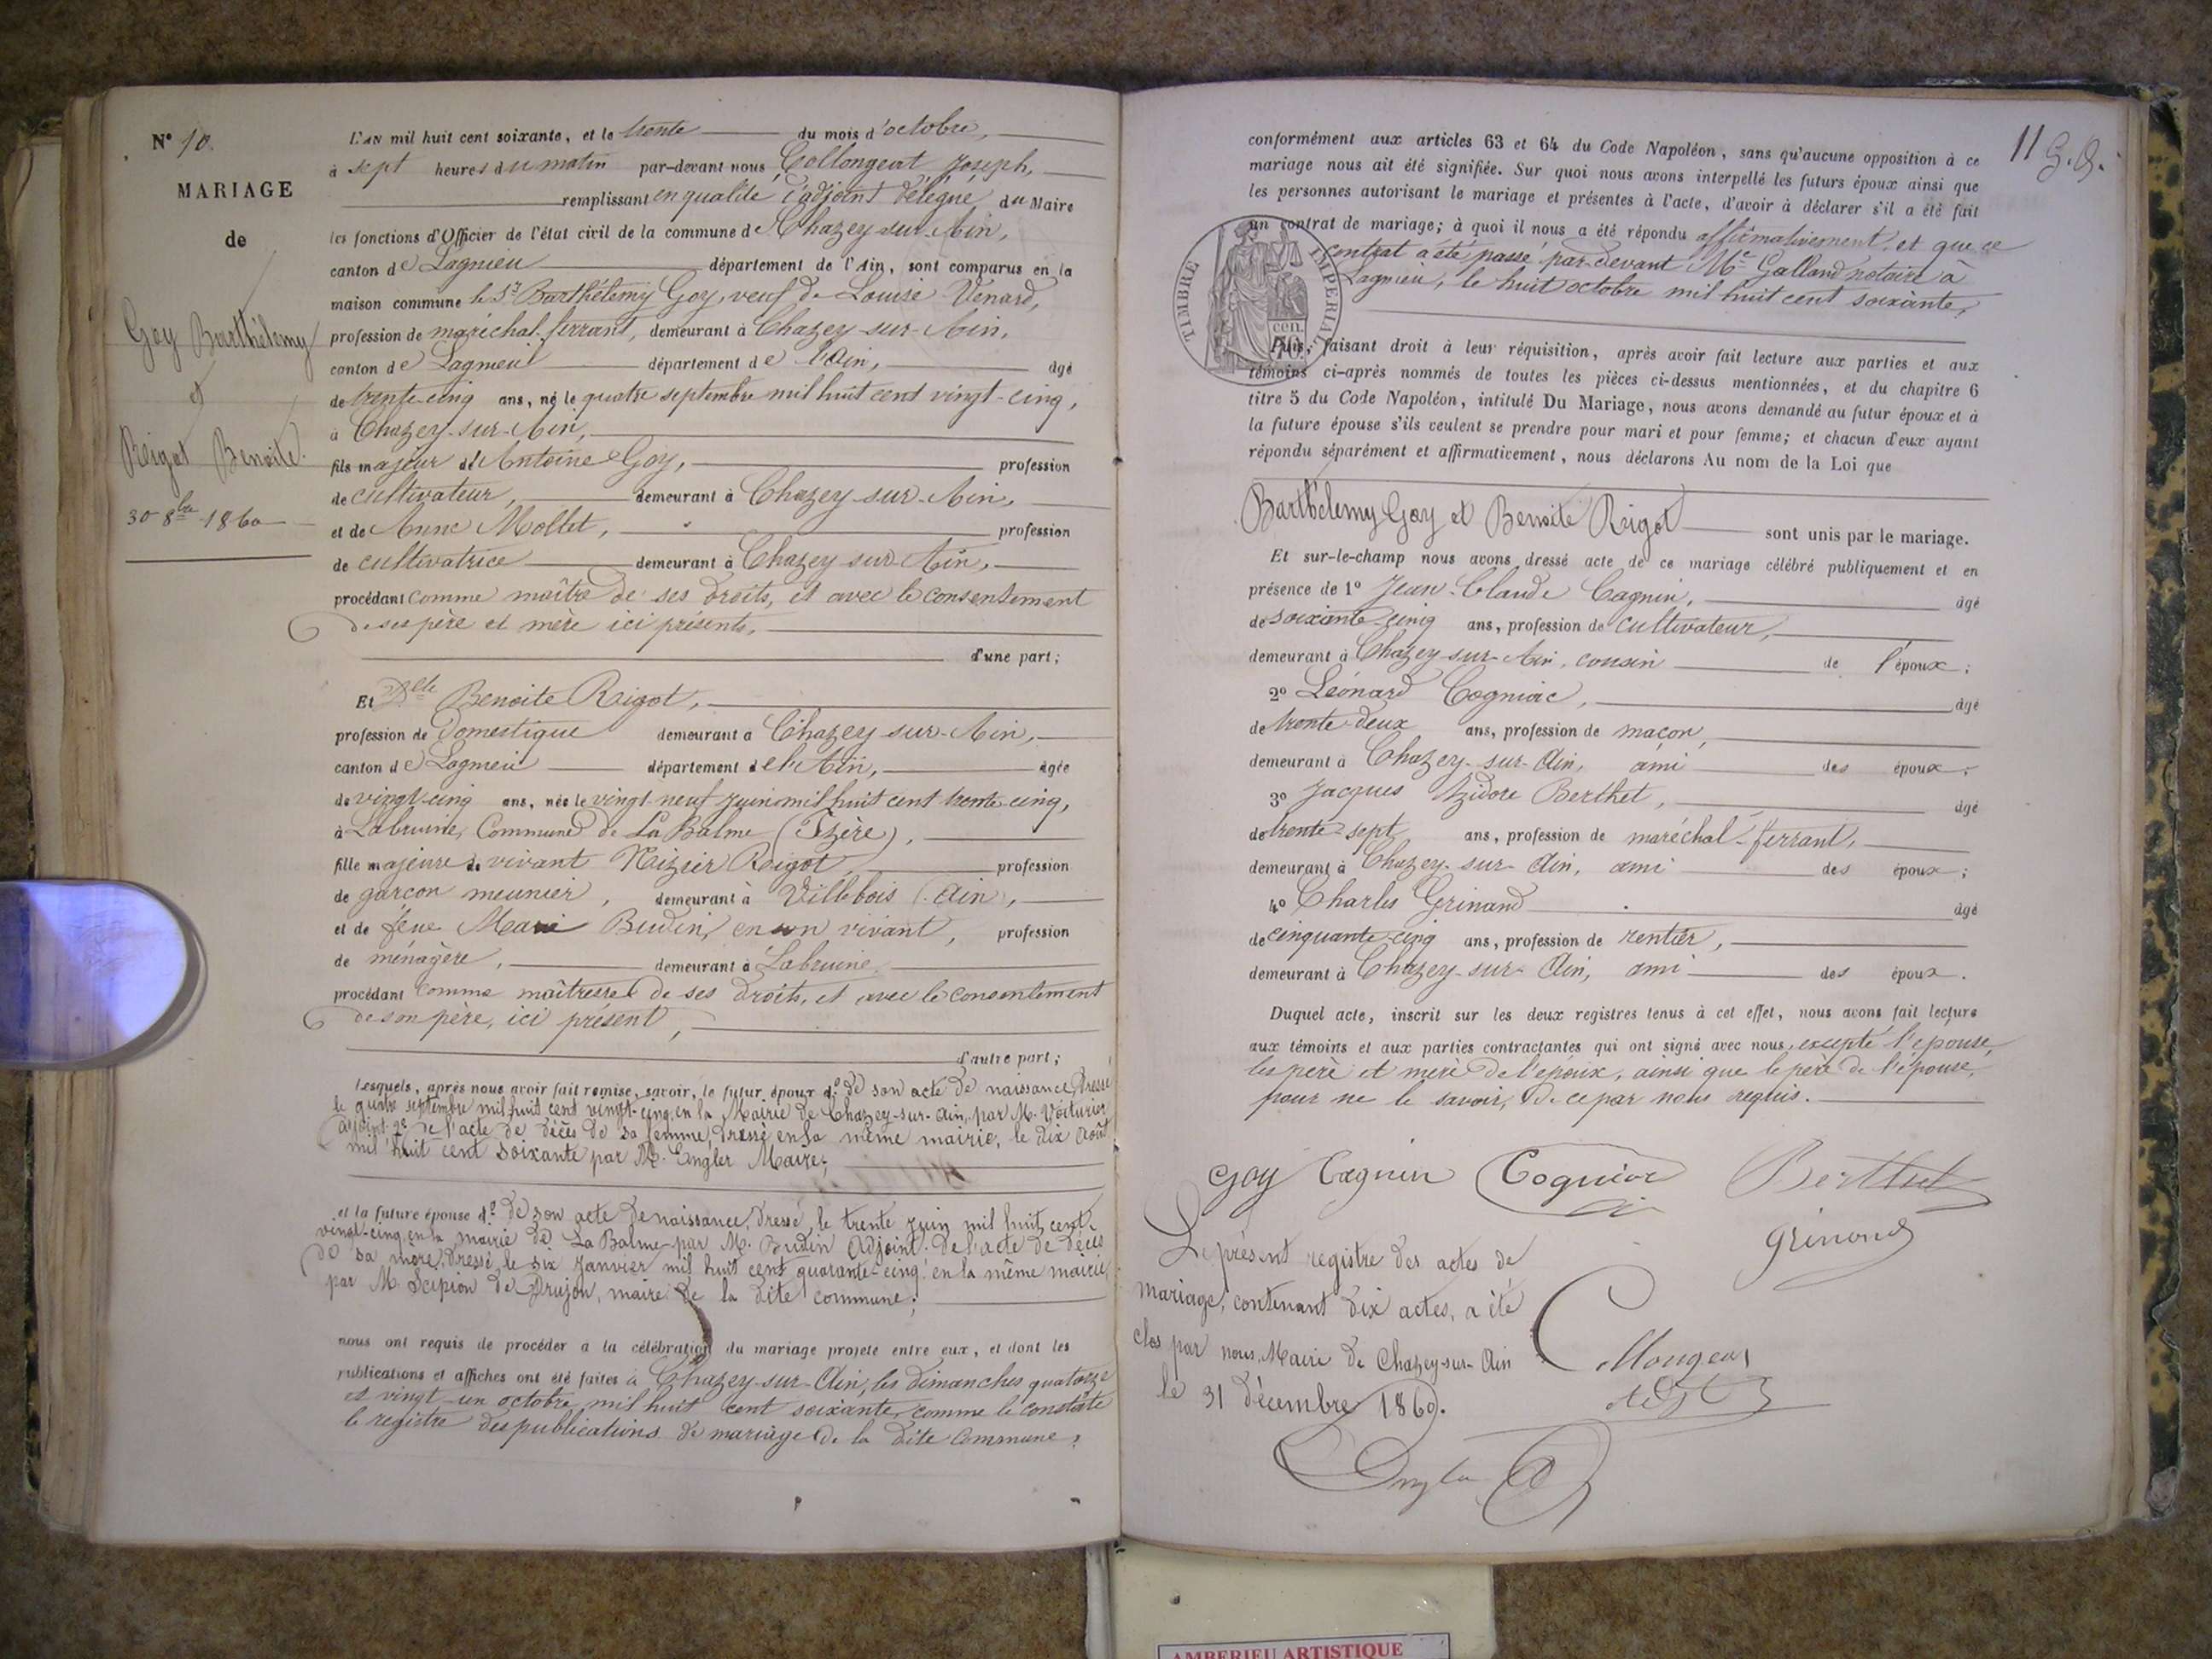 N° 10.
MARIAGE
de
Goy Barthélemy
et
Rigot Benoite.
30 8bre 1860
L'AN mil huit cent soixante, et le trente du mois d'octobre,
à sept heures du matin par-devant nous Collongeat Joseph,
remplissant en qualité d'adjoint délégué du Maire
les fonctions d'Officier de l'état civil de la commune de Chazey-sur-Ain,
canton de Lagnieu département de l'Ain, sont comparus en la
maison commune le Sr Barthélemy Goy, veuf de Louise Venard,
profession de maréchal-ferrant, demeurant à Chazey-sur-Ain,
canton de Lagnieu département de l'Ain, âgé
de trente-cinq ans, né le quatre septembre mil huit cent vingt-cinq,
à Chazey-sur-Ain,
fils majeur d'Antoine Goy, profession
de cultivateur, demeurant à Chazey-sur-Ain,
et de Anne Mollet, profession
de cultivatrice demeurant à Chazey-sur-Ain,
procédant comme maître de ses droits, et avec le consentement
de ses père et mère ici présents,
d'une part;
Et Dlle Benoite Rigot,
profession de Domestique demeurant à Chazey-sur-Ain,
canton de Lagnieu département de l'Ain, âgée
de vingt-cinq ans, née le vingt-neuf juin mil huit cent trente-cinq,
à Labruine, Commune de La Balme (Izère),
fille majeure de vivant Nizier Rigot, profession
de garçon meunier, demeurant à Villebois (Ain),
et de feue Marie Budin, en son vivant, profession
de ménagère, demeurant à Labruine,
procédant comme maîtresse de ses droits, et avec le consentement
de son père, ici présent,
d'autre part;
lesquels, après nous avoir fait remise, savoir, le futur époux d.° de son acte de naissance, dressé
le quatre septembre mil huit cent vingt-cinq en la Mairie de Chazey-sur-Ain, par M. Voiturier
adjoint: 2° de l'acte de décès de sa femme, dressé en la même mairie, le dix Août
mil huit cent soixante par M. Engler Maire;
et la future épouse d.° de son acte de naissance, dressé le trente juin mil huit cent
vingt-cinq en la mairie de La Balme par M. Budin Adjoint: de l'acte de décès
de sa mère, dressé le six janvier mil huit cent quarante-cinq, en la même mairie
par M. Scipion de Drujon, maire de la dite commune;
nous ont requis de procéder à la célébration du mariage projeté entre eux, et dont les
publications et affiches ont été faites à Chazey-sur-Ain, les dimanches quatorze
et vingt-un octobre mil huit cent soixante, comme le constate
le registre des publications de mariage de la dite commune;
11 G. G.
conformément aux articles 63 et 64 du Code Napoléon, sans qu'aucune opposition à ce
mariage nous ait été signifiée. Sur quoi nous avons interpellé les futurs époux ainsi que
les personnes autorisant le mariage et présentes à l'acte, d'avoir à déclarer s'il a été fait
un contrat de mariage; à quoi il nous a été répondu affirmativement, et que ce
contrat a été passé par-devant Me Galland notaire à
Lagnieu, le huit octobre mil huit cent soixante,
TIMBRE IMPERIAL
cen.
Puis, faisant droit à leur réquisition, après avoir fait lecture aux parties et aux
témoins ci-après nommés de toutes les pièces ci-dessus mentionnées, et du chapitre 6
titre 5 du Code Napoléon, intitulé Du Mariage, nous avons demandé au futur époux et à
la future épouse s'ils veulent se prendre pour mari et pour femme; et chacun d'eux ayant
répondu séparément et affirmativement, nous déclarons Au nom de la Loi que
Barthélemy Goy et Benoite Rigot sont unis par le mariage.
Et sur-le-champ nous avons dressé acte de ce mariage célébré publiquement et en
présence de 1° Jean-Claude Cagnin, âgé
de soixante-cinq ans, profession de cultivateur,
demeurant à Chazey-sur-Ain, cousin de l'époux;
2° Léonard Cogniac, âgé
de trente-deux ans, profession de maçon,
demeurant à Chazey-sur-Ain, ami des époux;
3° Jacques Izidore Berthet, âgé
de trente-sept ans, profession de maréchal-ferrant,
demeurant à Chazey-sur-Ain, ami des époux;
4° Charles Grinand âgé
de cinquante-cinq ans, profession de rentier,
demeurant à Chazey-sur-Ain, ami des époux.
Duquel acte, inscrit sur les deux registres tenus à cet effet, nous avons fait lecture
aux témoins et aux parties contractantes qui ont signé avec nous, excepté l'épouse,
les père et mère de l'époux, ainsi que le père de l'épouse,
pour ne le savoir, de ce par nous requis.
Goy Cagnin Cogniac Berthet
Grinand
Le présent registre des actes de
mariage, contenant dix actes, a été
clos par nous, Maire de Chazey-sur-Ain
le 31 décembre 1860.
AMBERIEU ARTISTIQUE